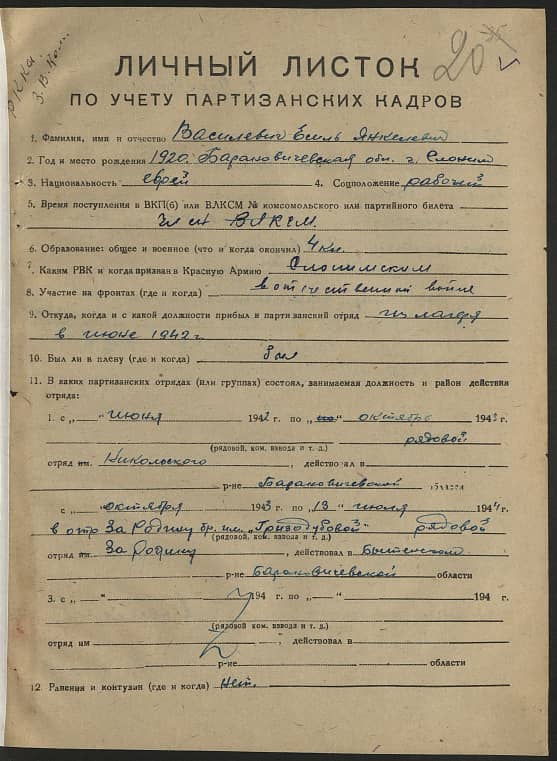 РККА.
З. В. Ком.
20
ЛИЧНЫЙ ЛИСТОК
ПО УЧЕТУ ПАРТИЗАНСКИХ КАДРОВ
1. Фамилия, имя и отчество Василевич Есиль Янкелевич
2. Год и место рождения 1920. Барановичевская обл. г. Слоним
3. Национальность еврей 4. Соцположение рабочий
5. Время поступления в ВКП(б) или ВЛКСМ № комсомольского или партийного билета
Член ВЛКСМ.
6. Образование: общее и военное (что и когда окончил) 4 кл.
7. Каким РВК и когда призван в Красную Армию Слонимским
8. Участие на фронтах (где и когда) в отечественной войне
9. Откуда, когда и с какой должности прибыл в партизанский отряд из лагеря
в июне 1942 г.
10. Был ли в плену (где и когда) был
11. В каких партизанских отрядах (или группах) состоял, занимаемая должность и район действия
отряда:
1. с „ “ июня 1942 г. по „ “ октябрь 1943 г.
рядовой
(рядовой, ком. взвода и т. д.)
отряд им. Никольского, действовал в
р-не Барановичевской области
с „ “ октября 1943 г. по „13“ июля 1944 г.
в отр За Родину бр. им. „Гризодубовой“ рядовой
(рядовой, ком. взвода и т. д.)
отряд им. За Родину, действовал в Бытенском
р-не Барановичевской области
3. с „ “ 194 г. по „ “ 194 г.
(рядовой ком. взвода и т. д.)
отряд им , действовал в
р-не области
12. Ранения и контузии (где и когда) нет.